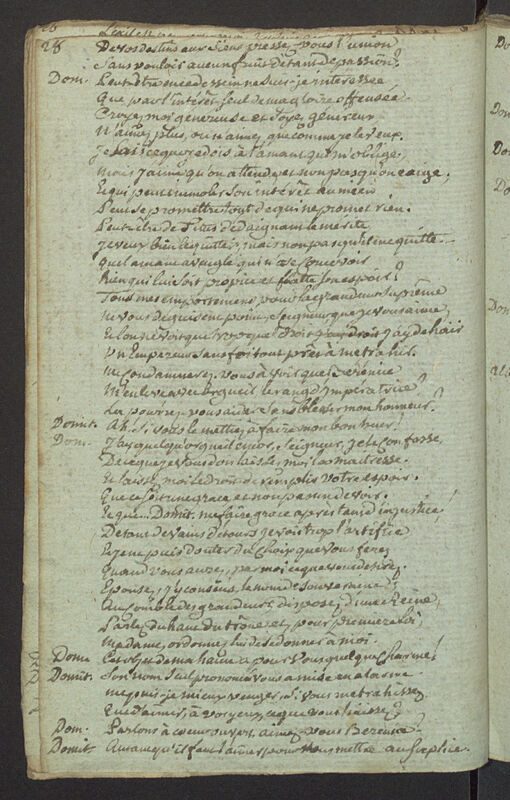 28
De vos destins aux siens pressez vous l'union
Sans vouloir aucun fruit de tant de passion?
Dom. Peut être en ce dessein ne suis-je interessée
Que par l'intérêt seul de ma gloire offensée.
Croyez moi genereuse et soyez généreux
N'aimez plus, ou n'aimez que comme je le veux.
Je sais ce que je dois à l'amant qui m'oblige;
mais j'aime qu'on attende et non pas qu'on exige,
Et qui peut immoler son intérêt au mien
Peut se promettre tout de qui ne promet rien.
Peut être de Titus dédaignant le mérite
Je veux bien le quitter, mais non pas qu'il me quitte
quel amant aveugle qui n'ose concevoir
Rien qui lui soit propice et flatte son espoir!
Tous mes emportemens pour la grandeur suprême
ne vous déguisent point, Seigneur, que je vous aime,
Et l'on ne voit que trop quel droit j'ay de haïr
Un Empereur sans foi tout prêt à me trahir.
me condamnerez-vous à voir que Berenice
M'enleve avec orgueil le rang d'Imperatrice?
Lui pourrez vous aider sans blesser mon honneur?
Domit. Ah! Si vous le mettiez à faire mon bonheur!
Dom. J'ay quelqu'orgueil encor, Seigneur, je le confesse.
De ce que je vous dois laissez moi la maitresse.
Et laissez moi le droit de remplir votre espoir.
Que ce soit une grace et non pas un devoir.
Et que... Domit. me faire grace après tant d'injustice!
De tant de vains détours je vois trop l'artifice
Et je ne puis douter du choix que vous ferez
Quand vous aurez par moi ce que vous desirez.
Epousez, j'y consens, le nom de Souveraine;
Au comble des grandeurs, disposez d'une Reine;
Parlez du haut du trône et, pour premiere loi;
Madame, ordonnez lui de se donner à moi.
Dom. Cet objet de ma haine a pour vous quelque charme!
Domit. Son nom seul prononcé vous a mise en alarme
me puis-je mieux venger, si vous me trahissez
Que d'aimer, à vos yeux, ce que vous haissez?
Dom. Parlons à coeur ouvert, aimez-vous Berenice?
Domit. Autant qu'il faut l'aimer, pour vous mettre au suplice.